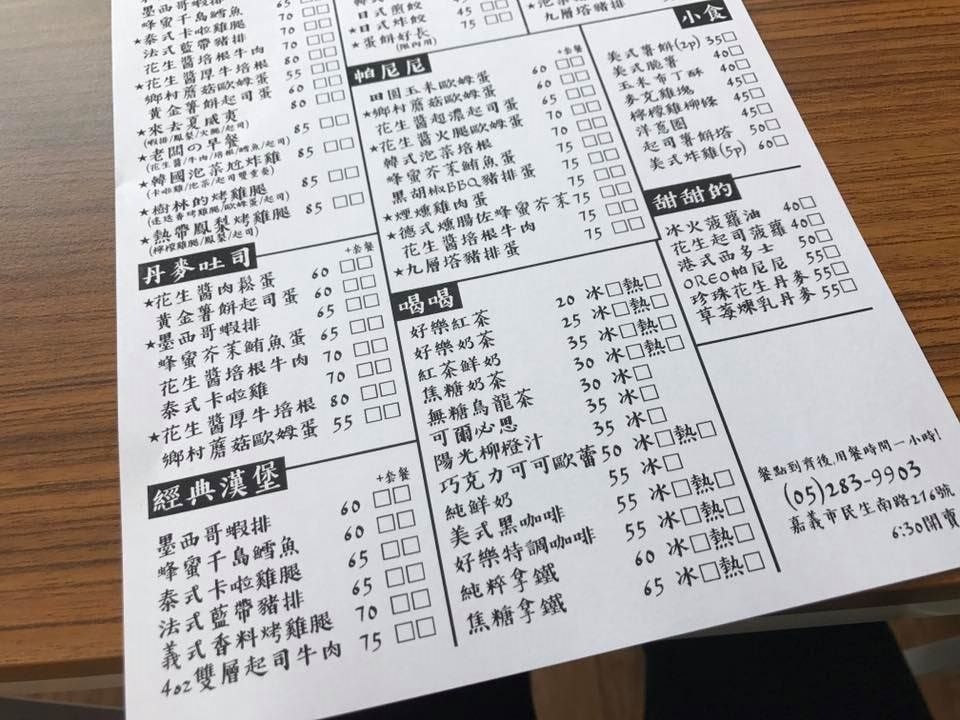 墨西哥蝦排
蜂蜜千島鱈魚
★泰式卡啦雞腿
法式藍帶豬排
花生醬培根牛肉
★花生醬厚牛培根
鄉村蘑菇歐姆蛋 55
黃金薯餅起司蛋 60
★來去夏威夷 80
(蝦排/鳳梨/火腿/起司)
★老闆の早餐 85
(花生醬/牛肉/培根/鱈魚/起司)
★韓國泡菜尬炸雞 85
(卡啦雞/泡菜/起司雙重奏)
★樹林的烤雞腿 85
(迷迭香烤雞腿/歐姆蛋/起司)
★熱帶鳳梨烤雞腿 85
(檸檬雞腿/鳳梨/起司)
丹麥吐司 +套餐
★花生醬肉鬆蛋 60
黃金薯餅起司蛋 60
★墨西哥蝦排 65
蜂蜜芥茉鮪魚蛋 65
花生醬培根牛肉 70
泰式卡啦雞 70
★花生醬厚牛培根 80
鄉村蘑菇歐姆蛋 55
經典漢堡 +套餐
墨西哥蝦排 60
蜂蜜千島鱈魚 65
泰式卡啦雞腿 65
法式藍帶豬排 65
義式香料烤雞腿 70
4oz雙層起司牛肉 75
日式煎餃 45
★日式炸餃 45
★蛋餅好長 70
(限內用)
帕尼尼 +套餐
田園玉米歐姆蛋 60
★鄉村蘑菇歐姆蛋 60
花生醬超濃起司蛋 65
★花生醬火腿歐姆蛋
韓式泡菜培根
蜂蜜芥茉鮪魚蛋
黑胡椒BBQ豬排蛋
★煙燻雞肉蛋
★德式燻腸佐蜂蜜芥茉 75
花生醬培根牛肉 75
★九層塔豬排蛋
喝喝
好樂紅茶 20 冰□熱□
好樂奶茶 25 冰□熱□
紅茶鮮奶 35 冰□熱□
焦糖奶茶 30 冰□熱□
無糖烏龍茶 30 冰□
可爾必思 35 冰□
陽光柳橙汁 35 冰□
巧克力可可歐蕾 50 冰□熱□
純鮮奶 55 冰□
美式黑咖啡 55 冰□熱□
好樂特調咖啡 55 冰□熱□
純粹拿鐵 60 冰□熱□
焦糖拿鐵 65 冰□熱□
★九層塔豬排
小食
美式薯餅(2p) 35□
美式脆薯 40□
玉米布丁酥 45□
麥克雞塊 40□
檸檬雞柳條 45□
洋蔥圈 45□
起司薯餅塔 50□
美式炸雞(5p) 60□
甜甜的
冰火菠蘿油 40□
花生起司菠蘿 40□
港式西多士 50□
OREO帕尼尼 55□
珍珠花生丹麥 55□
草莓煉乳丹麥 55□
餐點到齊後,用餐時間一小時!
(05)283-9903
嘉義市民生南路216號
6:30開賣